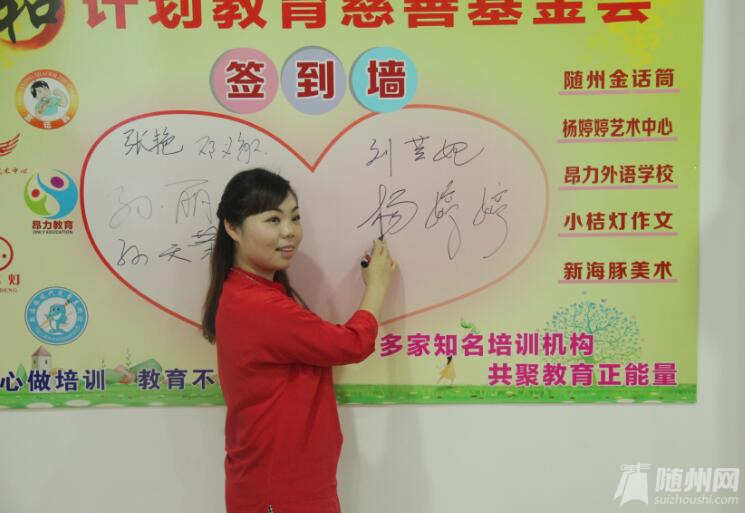 和
计划教育慈善基金会
签到墙
随州金话筒
杨婷婷艺术中心
昂力外语学校
小桔灯作文
新海豚美术
张艳 邓文敏
刘芸妃
孙丽
杨婷婷
孙天
术中心
昂力教育
ONLY EDUCATION
灯
DENG
多家知名培训机构
共聚教育正能量
心做培训 教育不
随州网
suizhoushi.com